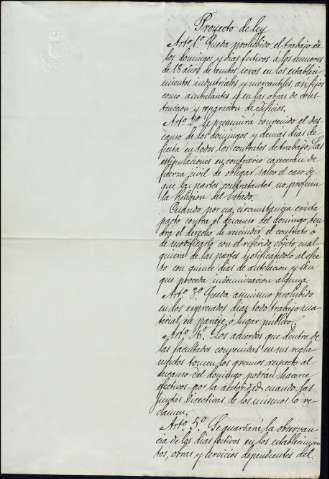 Proyecto de ley
Artº 1º Queda prohibido el trabajo de
los domingos y dias festivos a los menores
de 18 años de ambos sexos en los estableci-
mientos industriales y mercantiles, así fijos
como ambulantes et en las obras de cons-
truccion y reparacion de edificios.
Artº 2º Se presumirá convenido el des-
canso de los domingos y demas dias de
fiesta en todos los contratos de trabajo; las
estipulaciones en contrario carecerán de
fuerza civil de obligar salvo el caso de
que las partes contratantes no profesen
la Religion del Estado.
Cuando por una circunstancia exista
pacto contra el descanso del domingo, ten-
drá el derecho de rescindir el contrato ó
de modificarlo con el referido objeto cual-
quiera de las partes notificándolo al efec-
to con quince dias de antelacion y sin
que proceda indemnizacion alguna
Artº 3º Queda asimismo prohibido
en los expresados dias todo trabajo ma-
terial, en paraje ó lugar publico
Artº 4º Los acuerdos que dentro de
las facultades consignadas en sus regla-
mentos tomen los gremios respecto al
descanso del domingo podrán hacerse
efectivos por la autoridad cuando las
Juntas Directivas de los mismos lo re-
clamen
Artº 5º Se guardará la observan-
cia de los dias festivos en los establecimien-
tos, obras y servicios dependientes del